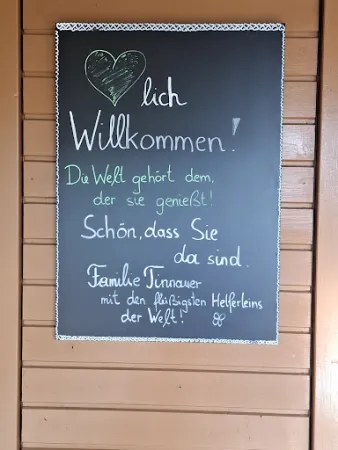 lich
Willkommen!
Die Welt gehört dem,
der sie genießt!
Schön, dass Sie
da sind.
Familie Tinnauer
mit den fleißigsten Helferleins
der Welt!